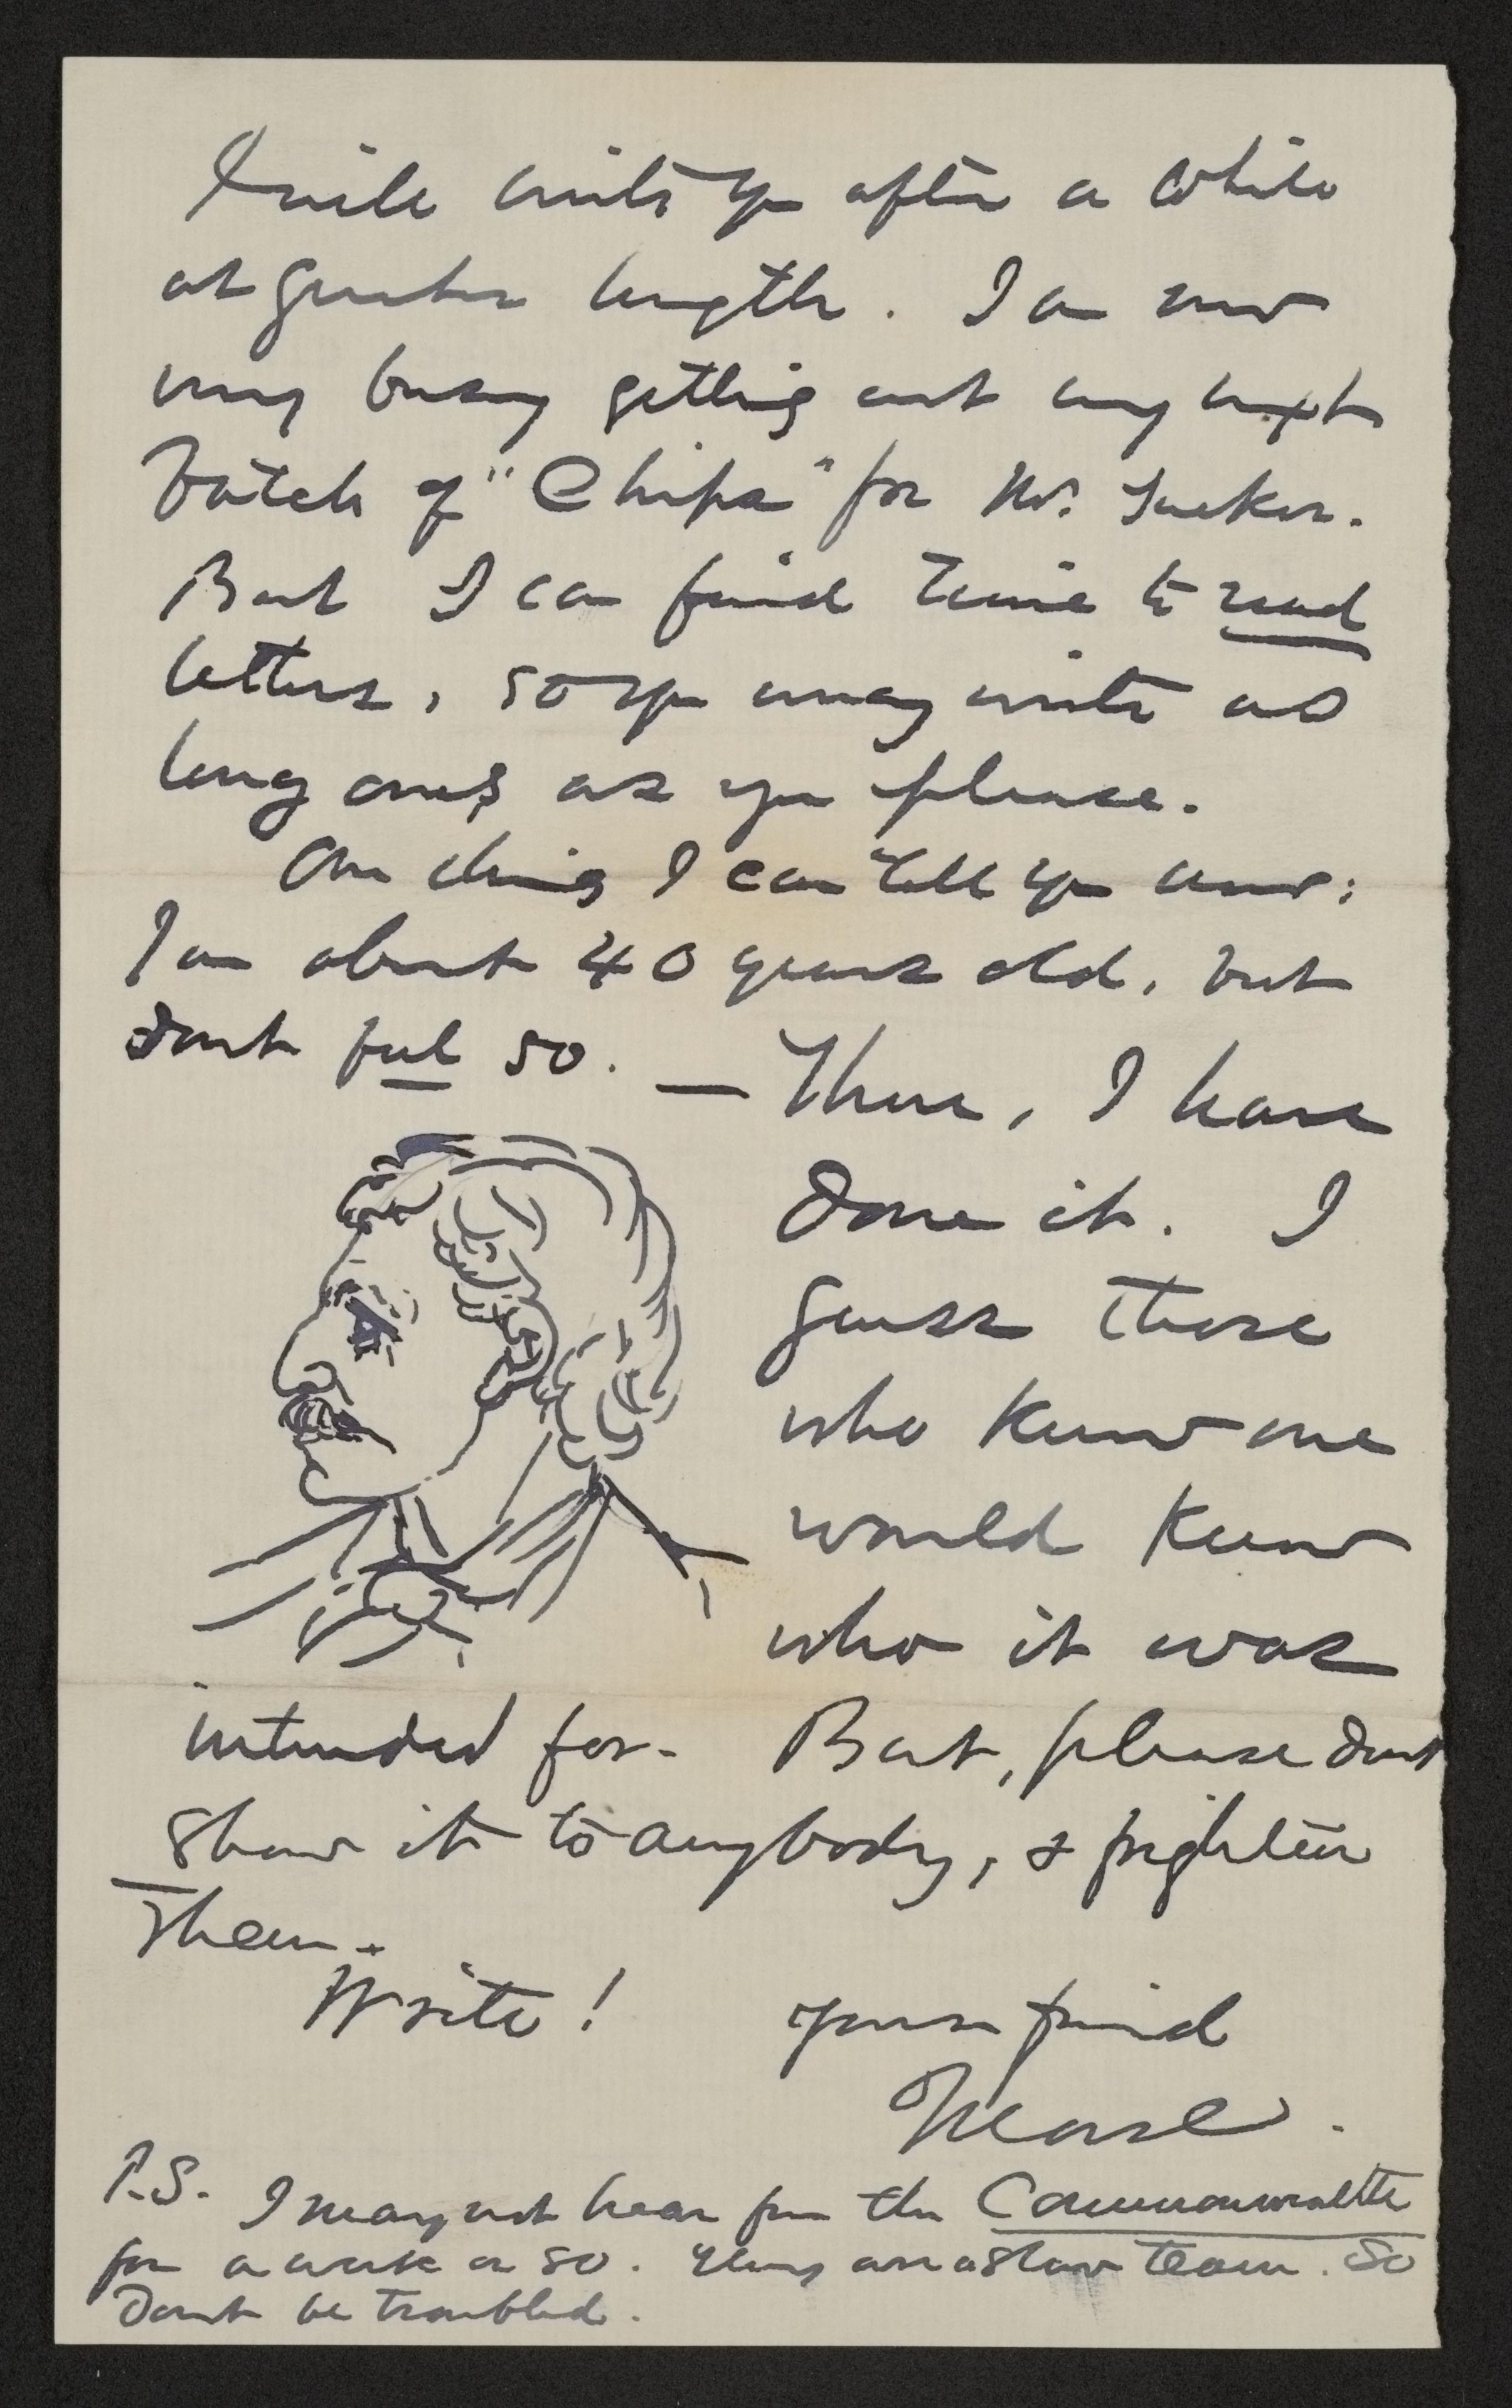 I will write you after a while
at greater length. I am now
very busy getting out my next
batch of "Chips" for Mr. Tucker.
But I can find time to read
letters, so you may write as
long ones as you please.
One thing I can tell you now:
I am about 40 years old, but
dont feel so. — There, I have
done it. I
guess those
who know me
would know
who it was
intended for. But, please dont
show it to anybody, & frighten
them.
Write! Your friend
P.S. I may not hear from the Commonwealth
for a week or so. They are a slow team. So
dont be troubled.